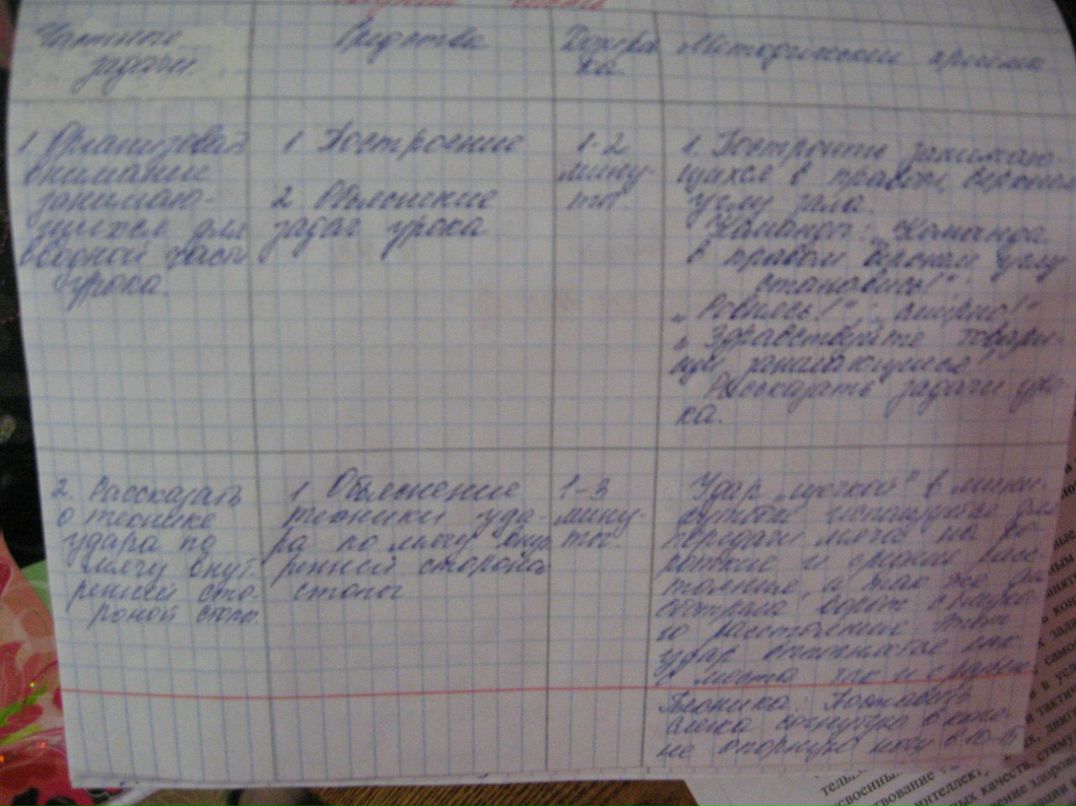 Частные задачи.
Средства
Дозировка.
Методические приемы
1. Организовать
внимание
занимаю-
щихся для
вводной части
урока.
1 Построение
2. Объяснение
задач урока
1-2
мину-
ты.
1. Построить занимаю-
щихся в правом верхнем
углу зала.
Команды: „Команда
в правом верхнем углу
становись!"
„Ровнясь!" „Смирно!"
„Здравствуйте товари-
щи занимающиеся"
Рассказать задачи уро-
ка.
2. Рассказать
о технике
удара по
мячу внут-
ренней сто-
роной стопы.
1 Объяснение
техники уда-
ра по мячу внут
ренней стороной
стопы
1-3
мину-
ты.
Удар „щечкой" в мини-
футболе используется для
передачи мяча на ко-
роткие и средние расс-
тояния, а так же для
обстрела ворот с
расстояния. Этот
удар выполняется как
с места так и с разбега
Техника: Поставить
слегка согнутую в коле-
не опорную ногу в 10-15